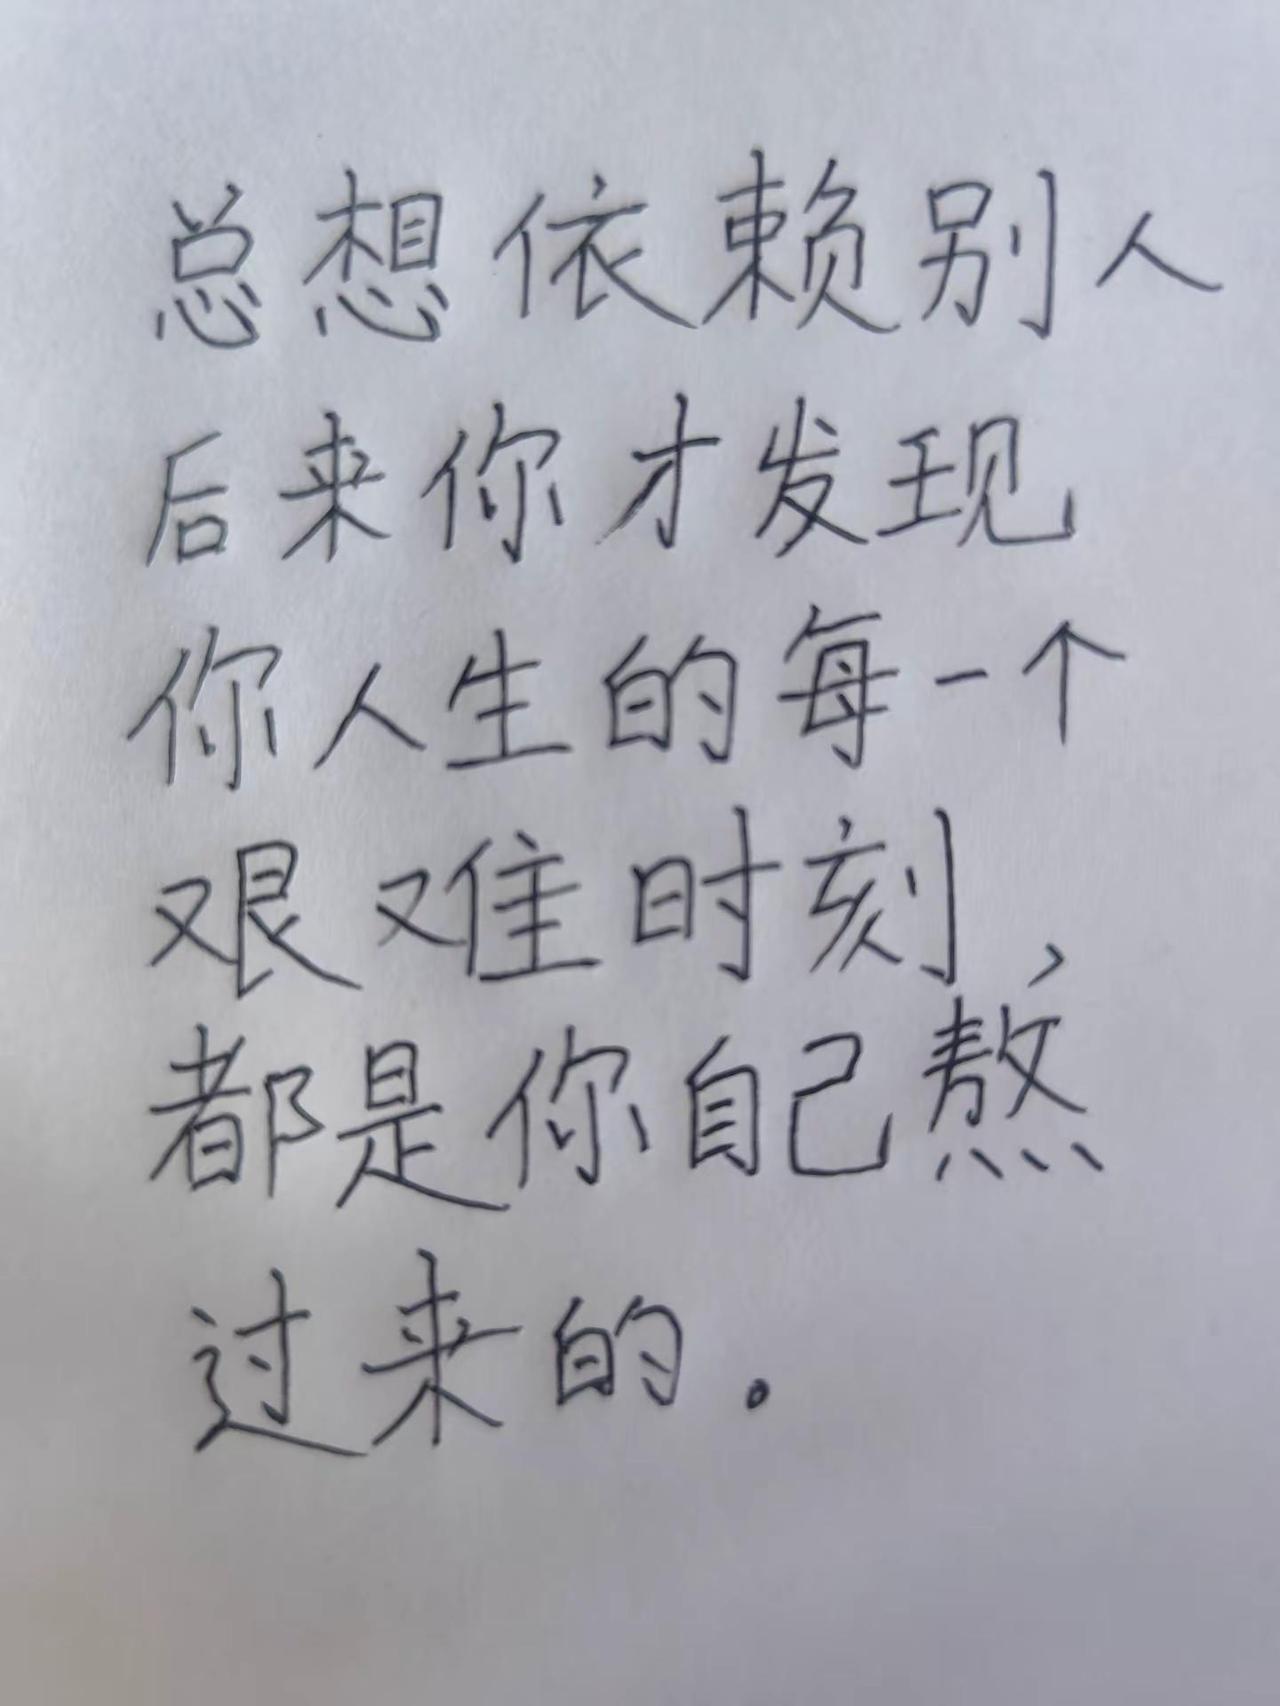 总想依赖别人
后来你才发现
你人生的每一个
艰难时刻，
都是你自己熬
过来的。